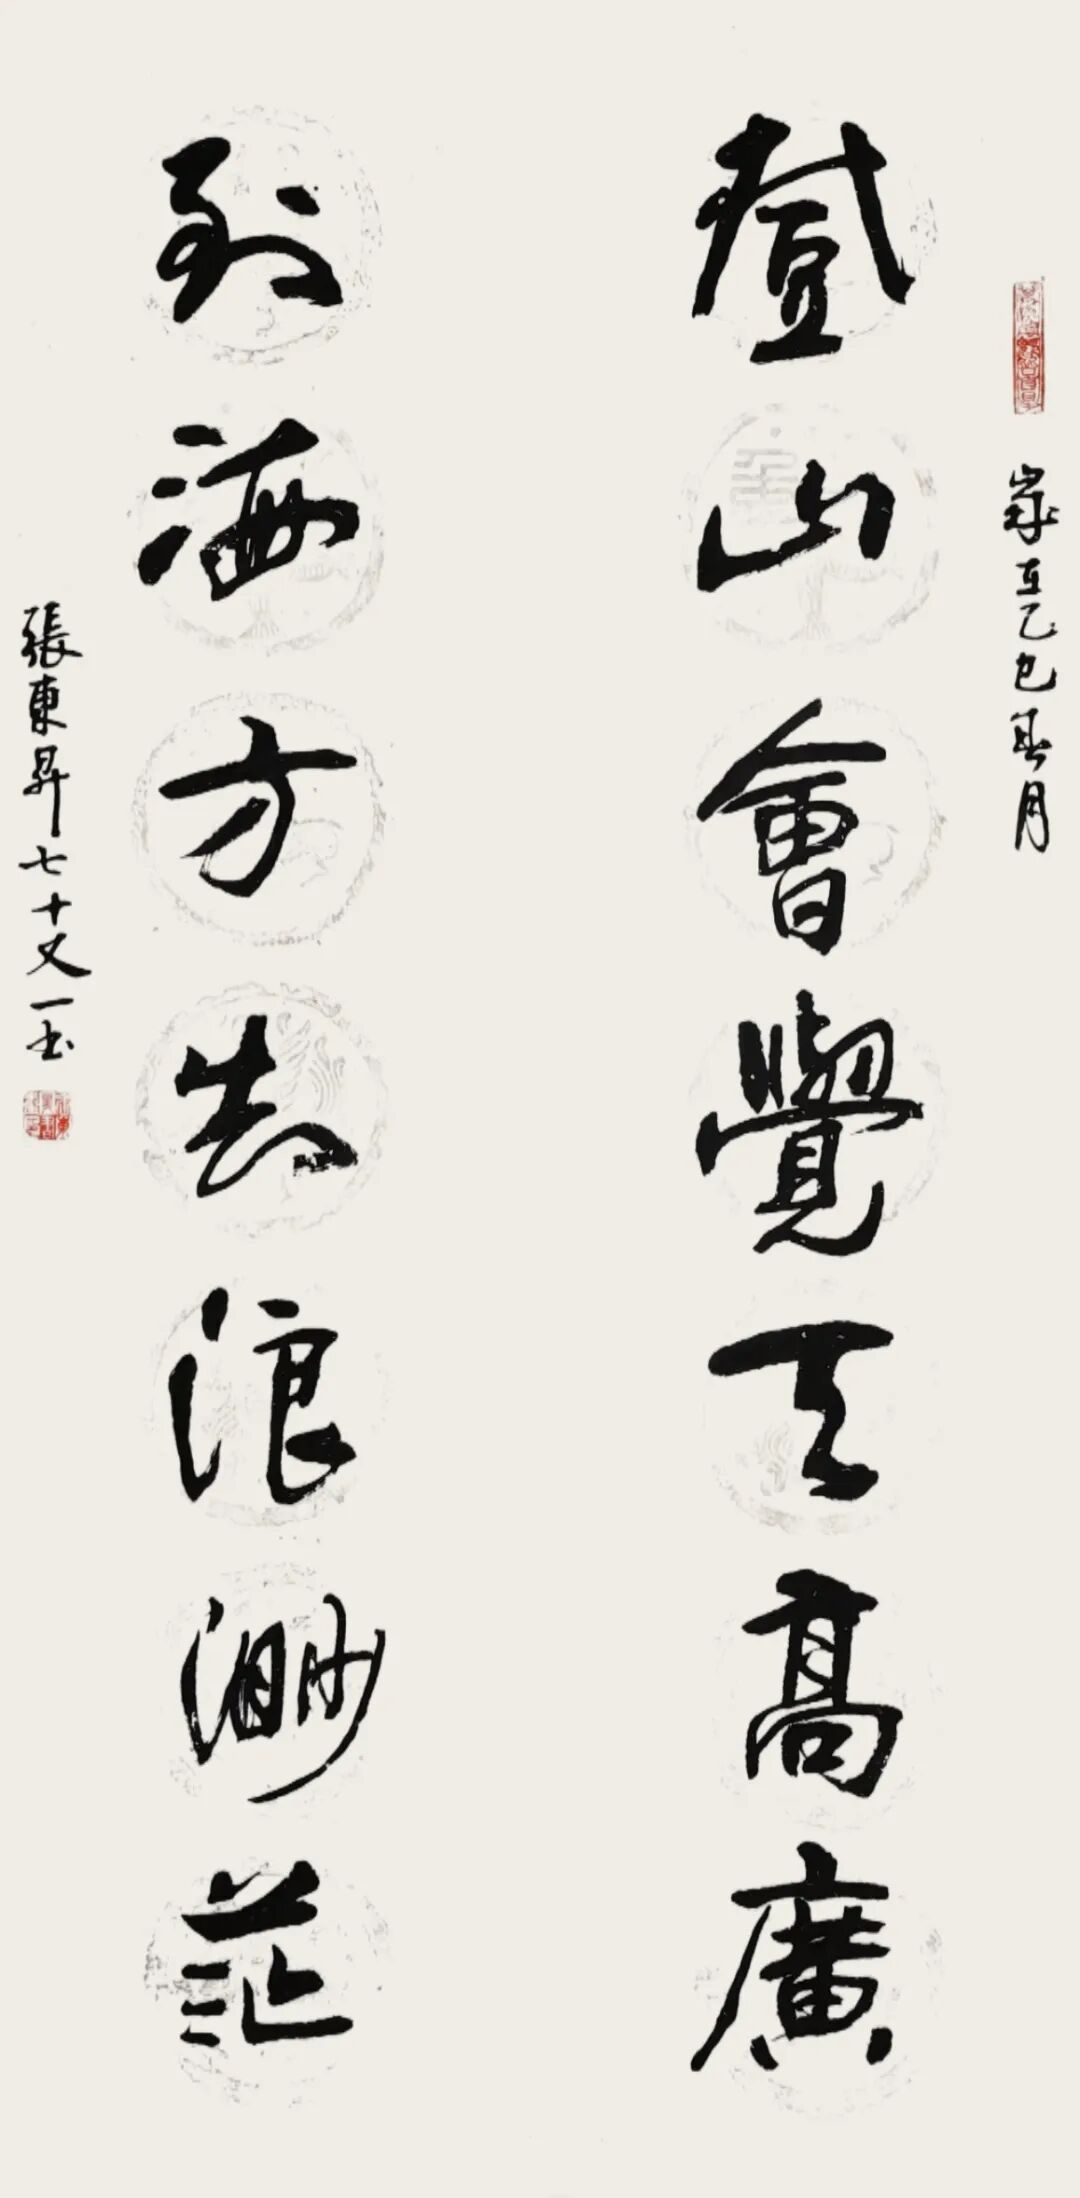 歲在乙巳春月
登山會覺天高廣
到海方知浪渺茫
張東昇七十又一书